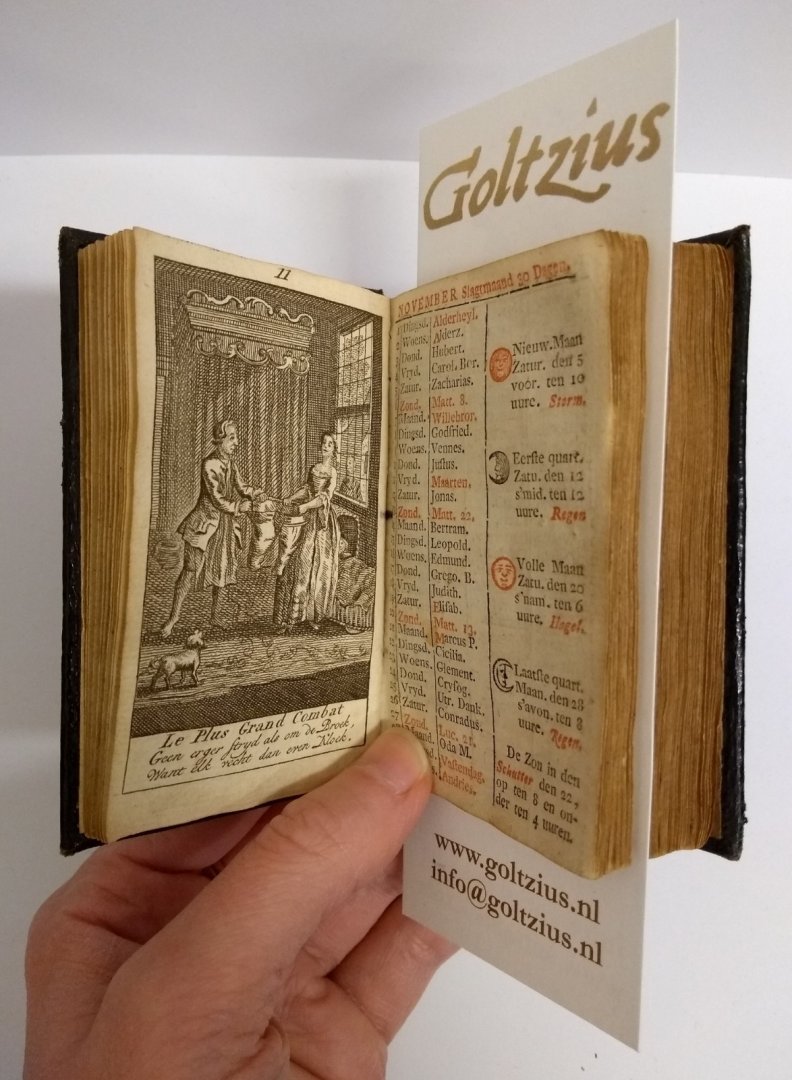 Goltzius
11
Le Plus Grand Combat
Geen erger ſtryd als om de Broek,
Want elk vecht dan even Kloek,
NOVEMBER Slagtmaand 30 Dagen.
Dingsd. Alderheyl.
Woens. Alderz.
Dond. Hubert.
Vryd. Carol. Bor.
Zatur. Zacharias.
Zond. Matt. 8.
Maand. Willebror.
Dingsd. Godfried.
Woens. Vennes.
Dond. Juſtus.
Vryd. Maarten.
Zatur. Jonas.
Zond. Matt. 22.
Maand. Bertram.
Dingsd. Leopold.
Woens. Edmund.
Dond. Grego. B.
Vryd. Judith.
Zatur. Eliſab.
Zond. Matt. 13.
Maand. Marcus P.
Dingsd. Cicilia.
Woens. Clement.
Dond. Cryſog.
25 Vryd. Utr. Dank.
26 Zatur. Conradus.
27 Zond. Luc. 21.
Maand. Oda M.
Vaſtendag.
Andries.
Nieuw. Maan
Zatur. den 5
voor. ten 10
uure. Storm.
Eerſte quart.
Zatu. den 12
s'mid. ten 12
uure. Regen
Volle Maan
Zatu. den 20
s'nam. ten 6
uure. Hagel.
Laatſte quart.
Maan. den 28
s'avon. ten 8
uure. Regen.
De Zon in den
Schutter den 22,
op ten 8 en on-
der ten 4 uuren.
www.goltzius.nl
info@goltzius.nl